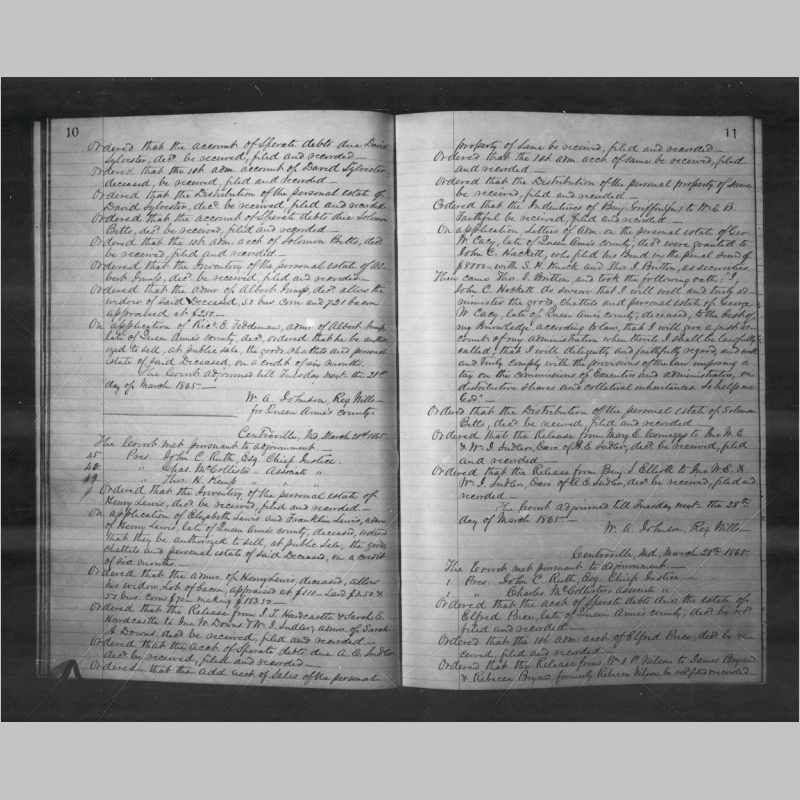 10
Ordered that the account of Sperate debts due David
Sylvester, decd be received, filed and recorded —
Ordered that the 1st adm. account of David Sylvester
deceased, be received, filed and recorded —
Ordered that the Distribution of the personal estate of
David Sylvester, decd be received, filed and records
Ordered that the account of Sperate debts due Solomon
Betts, decd be received, filed and recorded —
Ordered that the 1st adm. acct of Solomon Betts, decd
be received, filed and recorded —
Ordered that the Inventory of the personal estate of
be received, filed and recorded —
Ordered that the admr of Albert Jump, decd allow the
widow of said Deceased, 50 bus corn and
appraised at
On application of Ricd E. Tiddeman, admr of Albert Jump
late of Queen Anne's county, decd, ordered that he be
to sell, at public sale, the goods, chattels and personal
estate of said Deceased, on a credit of six months —
The Court adjourned till Tuesday next the 21st
day of March 1865 —
W. A. Johnson, Reg Wills —
for Queen Anne's county —
Centreville, Md, March 21st 1865
The Court met pursuant to adjournment —
45 Pres. John C. Ruth, Esq. Chief Justice.
" Chas. McCollister — Associate "
49 " Thos. H. Kemp " " "
Ordered that the Inventory of the personal estate of
Henry Lewis, decd be received, filed and recorded —
On application of Elizabeth Lewis and Franklin Lewis, admrs
of Henry Lewis, late of Queen Anne's county, deceased, ordered
that they be authorized to sell, at public Sale, the goods
chattels and personal estate of said Deceased, on a credit
of six months —
Ordered that the admrs. of Henry Lewis, deceased, allow
his widow, Lot of bacon, appraised at $110 — Lard $2.50 &
50 bus. corn $70 — making $182.50 —
Ordered that the Release from J. T. Hardcastle & Sarah E.
Hardcastle to Jno W. Downs & W. I. Sudler, admrs of Sarah
A. Downs, decd be received, filed and recorded —
Ordered that the acct of Sperate debts due A. E. Sudler
decd be received, filed and recorded —
Ordered that the add acct of Sales of the personal
11
property of same be received, filed and recorded —
Ordered that the 1st adm acct of same be received, filed
and recorded —
Ordered that the Distribution of the personal property of same
be received, filed and recorded —
Ordered that the Indenture of Benj. to W. E. B.
Faithful be received, filed and recorded —
On application Letters of Adm. on the personal estate of Geo.
W. Cacy, late of Queen Anne's county, decd were granted to
John C. Hackett, who filed his Bond in the penal sum of
$8000 with S. H. and Thos. J. Britton, as securities.
Then came Thos. J. Britton, and took the following oath: "I,
John C. Hackett do swear that I will well and truly ad-
minister the goods, chattels and personal estate of George
W. Cacy, late of Queen Anne's county, deceased, to the best of
my knowledge according to law, that I will give a just ac-
count of my administration when thereto I shall be lawfully
called; that I will diligently and faithfully regard and well
and truly comply with the provisions of the law imposing a
tax on the commissions of Executors and administrators, on
distributive shares and collateral inheritances. So help me
God."
Ordered that the Distribution of the personal estate of Solomon
Betts, decd be received, filed and recorded —
Ordered that the Release from Mary E. to Jno W. E.
& Wm I. Sudler, Exrs. of A. E. Sudler, decd be received, filed
and recorded —
Ordered that the Release from Benj. S. Elliott to Jno W. E. &
Wm I. Sudler, Exrs of A. E. Sudler, decd be received, filed and
recorded —
The Court adjourned till Tuesday next the 28th
day of March 1865 —
W. A. Johnson, Reg Wills —
Centreville, Md, March 28th 1865.
The Court met pursuant to adjournment —
1 Pres. John C. Ruth, Esq. Chief Justice —
1 " Charles McCollister Associate " —
Ordered that the acct of Sperate debts due the estate of
Elfred Price, late of Queen Anne's county, decd be recd
filed and recorded —
Ordered that the 1st adm acct of Elfred Price, decd be re-
ceived, filed and recorded —
Ordered that the Release from Wm S. P. Wilson to James Bryan
& Rebecca Bryan, formerly Rebecca Wilson be recd filed & recorded